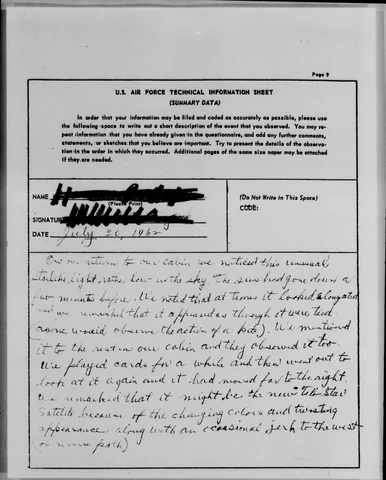 Page 9
U.S. AIR FORCE TECHNICAL INFORMATION SHEET
(SUMMARY DATA)
In order that your information may be filed and coded as accurately as possible, please use
the following space to write out a short description of the event that you observed. You may re-
peat information that you have already given in the questionnaire, and add any further comments,
statements, or sketches that you believe are important. Try to present the details of the observa-
tion in the order in which they occurred. Additional pages of the same size paper may be attached
if they are needed.
NAME
(Please Print)
SIGNATURE
DATE July 20, 1962
(Do Not Write in This Space)
CODE:
On our return to our cabin we noticed this unusual
starlike light, rather low in the sky the sun had gone down a
few minutes before. We noted that at times it looked elongated
and we remarked that it appeared as though it were tied
(as one would observe the action of a kite). We mentioned
it to the rest in our cabin and they observed it too.
We played cards for a while and then went out to
look at it again and it had moved far to the right.
We remarked that it might be the new Tel-Star
Satelite because of the changing colors and twisting
appearance along with an occasional jerk to the west
(or reverse path)